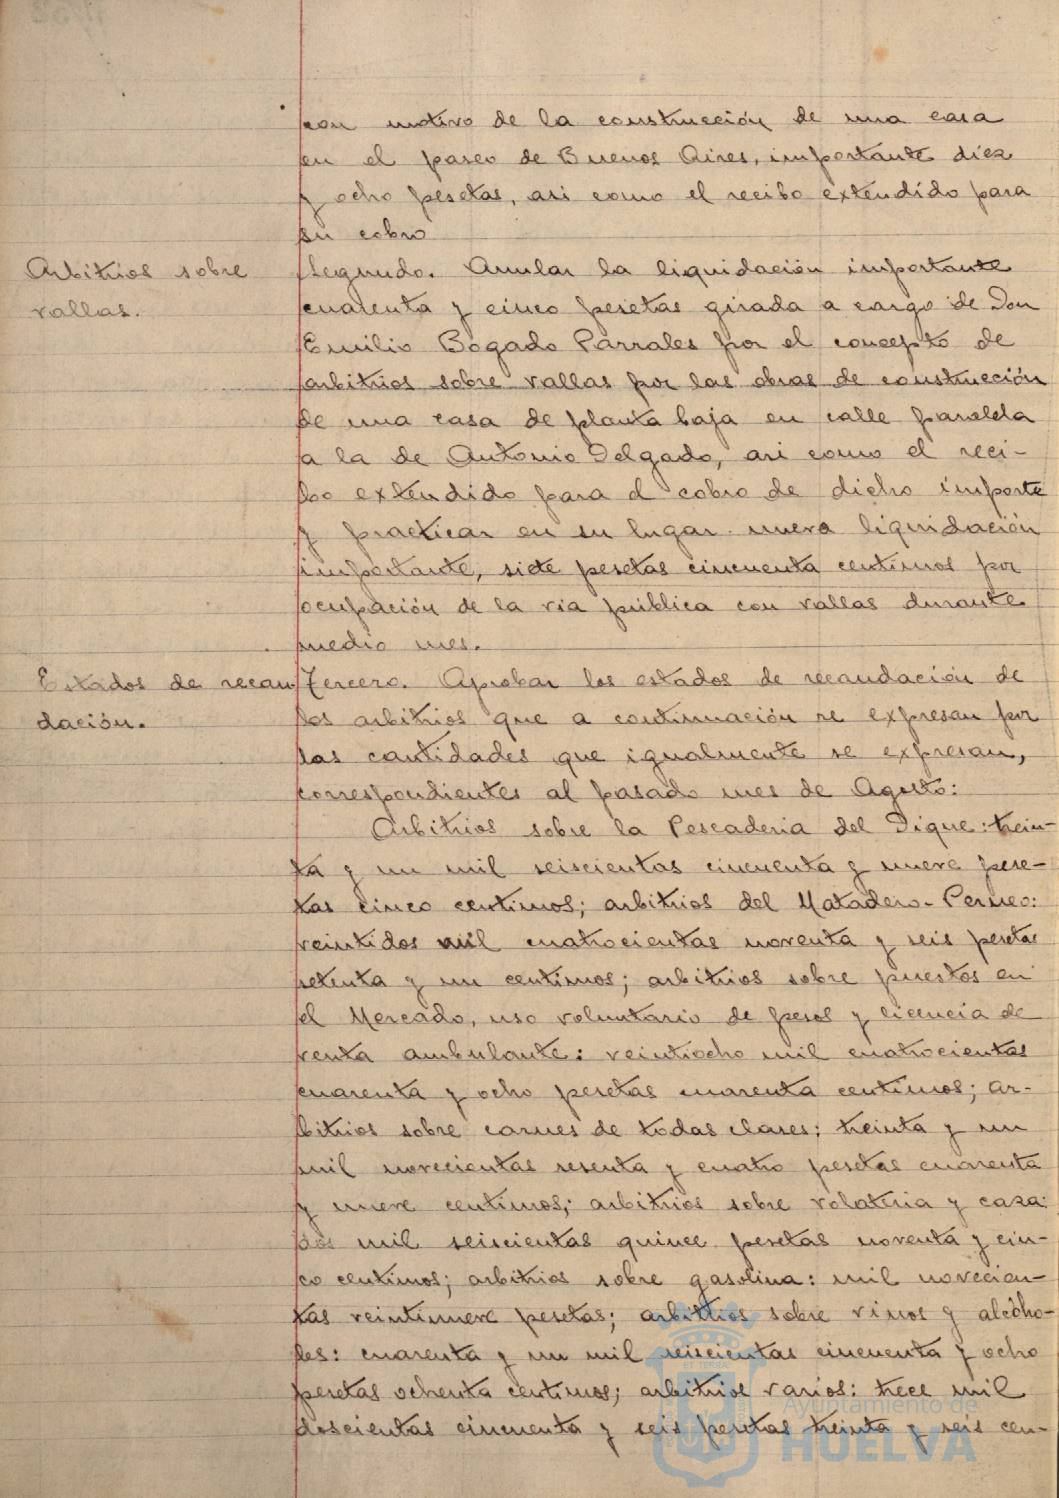 con motivo de la construcción de una casa
en el paseo de Buenos Aires, importante diez
y ocho pesetas, asi como el recibo extendido para
su cobro
Arbitrios sobre
vallas.
Segundo. Anular la liquidación importante
cuarenta y cinco pesetas girada a cargo de Don
Emilio Bogado Parrales por el concepto de
arbitrios sobre vallas por las obras de construcción
de una casa de planta baja en calle paralela
a la de Antonio Delgado, asi como el reci-
bo extendido para el cobro de dicho importe
y practicar en su lugar nueva liquidación
importante, siete pesetas cincuenta centimos por
ocupación de la via pública con vallas durante
medio mes.
Estados de recau
dación.
Tercero. Aprobar los estados de recaudación de
los arbitrios que a continuación se expresan por
las cantidades que igualmente se expresan,
correspondientes al pasado mes de Agosto:
Arbitrios sobre la Pescaderia del Dique: trein-
ta y un mil seiscientas cincuenta y nueve pese-
tas cinco centimos; arbitrios del Matadero-Perneo:
veintidos mil cuatrocientas noventa y seis pesetas
setenta y un centimos; arbitrios sobre puestos en
el Mercado, uso voluntario de pesos y licencia de
venta ambulante: veintiocho mil cuatrocientas
cuarenta y ocho pesetas cuarenta centimos; ar-
bitrios sobre carnes de todas clases; treinta y un
mil novecientas sesenta y cuatro pesetas cuarenta
y nueve centimos; arbitrios sobre volateria y caza:
dos mil seiscientas quince pesetas noventa y cin-
co centimos; arbitrios sobre gasolina: mil novecien-
tas veintinueve pesetas; arbitrios sobre vinos y alcoho-
les: cuarenta y un mil seiscientas cincuenta y ocho
pesetas ochenta centimos; arbitrios varios: trece mil
doscientas cincuenta y seis pesetas treinta y seis cen-
Ayuntamiento de
HUELVA